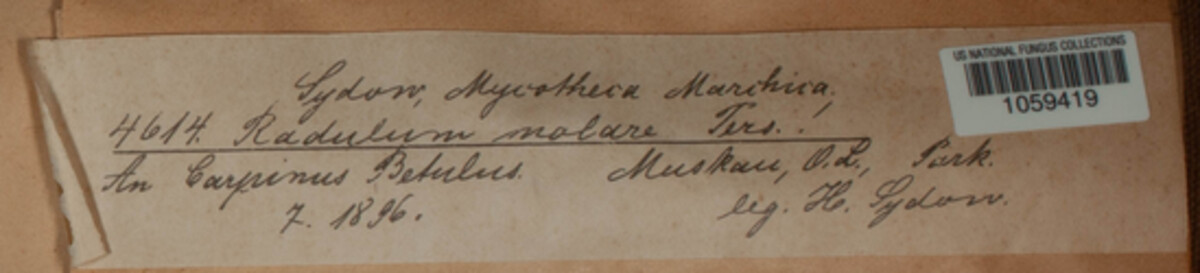 Sydow, Mycotheca Marchica,
4614. Radulum molare Pers.!
An Carpinus Betulus. Muskau, O.L., Park.
7. 1896. leg. H. Sydow.
US NATIONAL FUNGUS COLLECTIONS
1059419